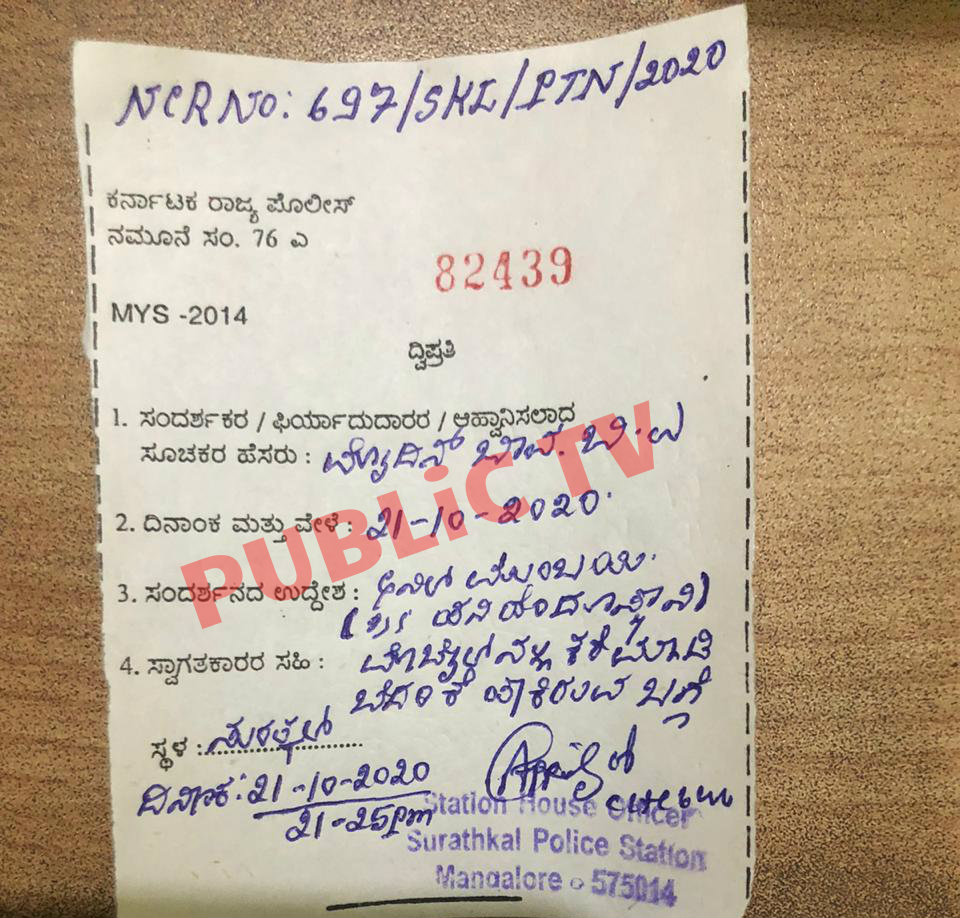 NCR NO: 697/SKL/PTN/2020
ಕರ್ನಾಟಕ ರಾಜ್ಯ ಪೊಲೀಸ್
ನಮೂನೆ ಸಂ. 76 ಎ
82439
MYS -2014
ದ್ವಿಪ್ರತಿ
1. ಸಂದರ್ಶಕರ / ಫಿರ್ಯಾದುದಾರರ / ಆಹ್ವಾನಿಸಲಾದ
ಸೂಚಕರ ಹೆಸರು : ಮೊಯಿದಿನ್ ಬಾವ. ಬಿ.ಎ
PUBLiC TV
2. ದಿನಾಂಕ ಮತ್ತು ವೇಳೆ : 21-10-2020
3. ಸಂದರ್ಶನದ ಉದ್ದೇಶ :
4. ಸ್ವಾಗತಕಾರರ ಸಹಿ : ಕರೆ ಮಾಡಿ
ಬೆದರಿಕೆ ಹಾಕಿರುವ ಬಗ್ಗೆ
ಸ್ಥಳ : ಸುರತ್ಕಲ್
ದಿನಾಂಕ: 21-10-2020
21-25pm
Station House Officer
Surathkal Police Station
Mangalore 575014